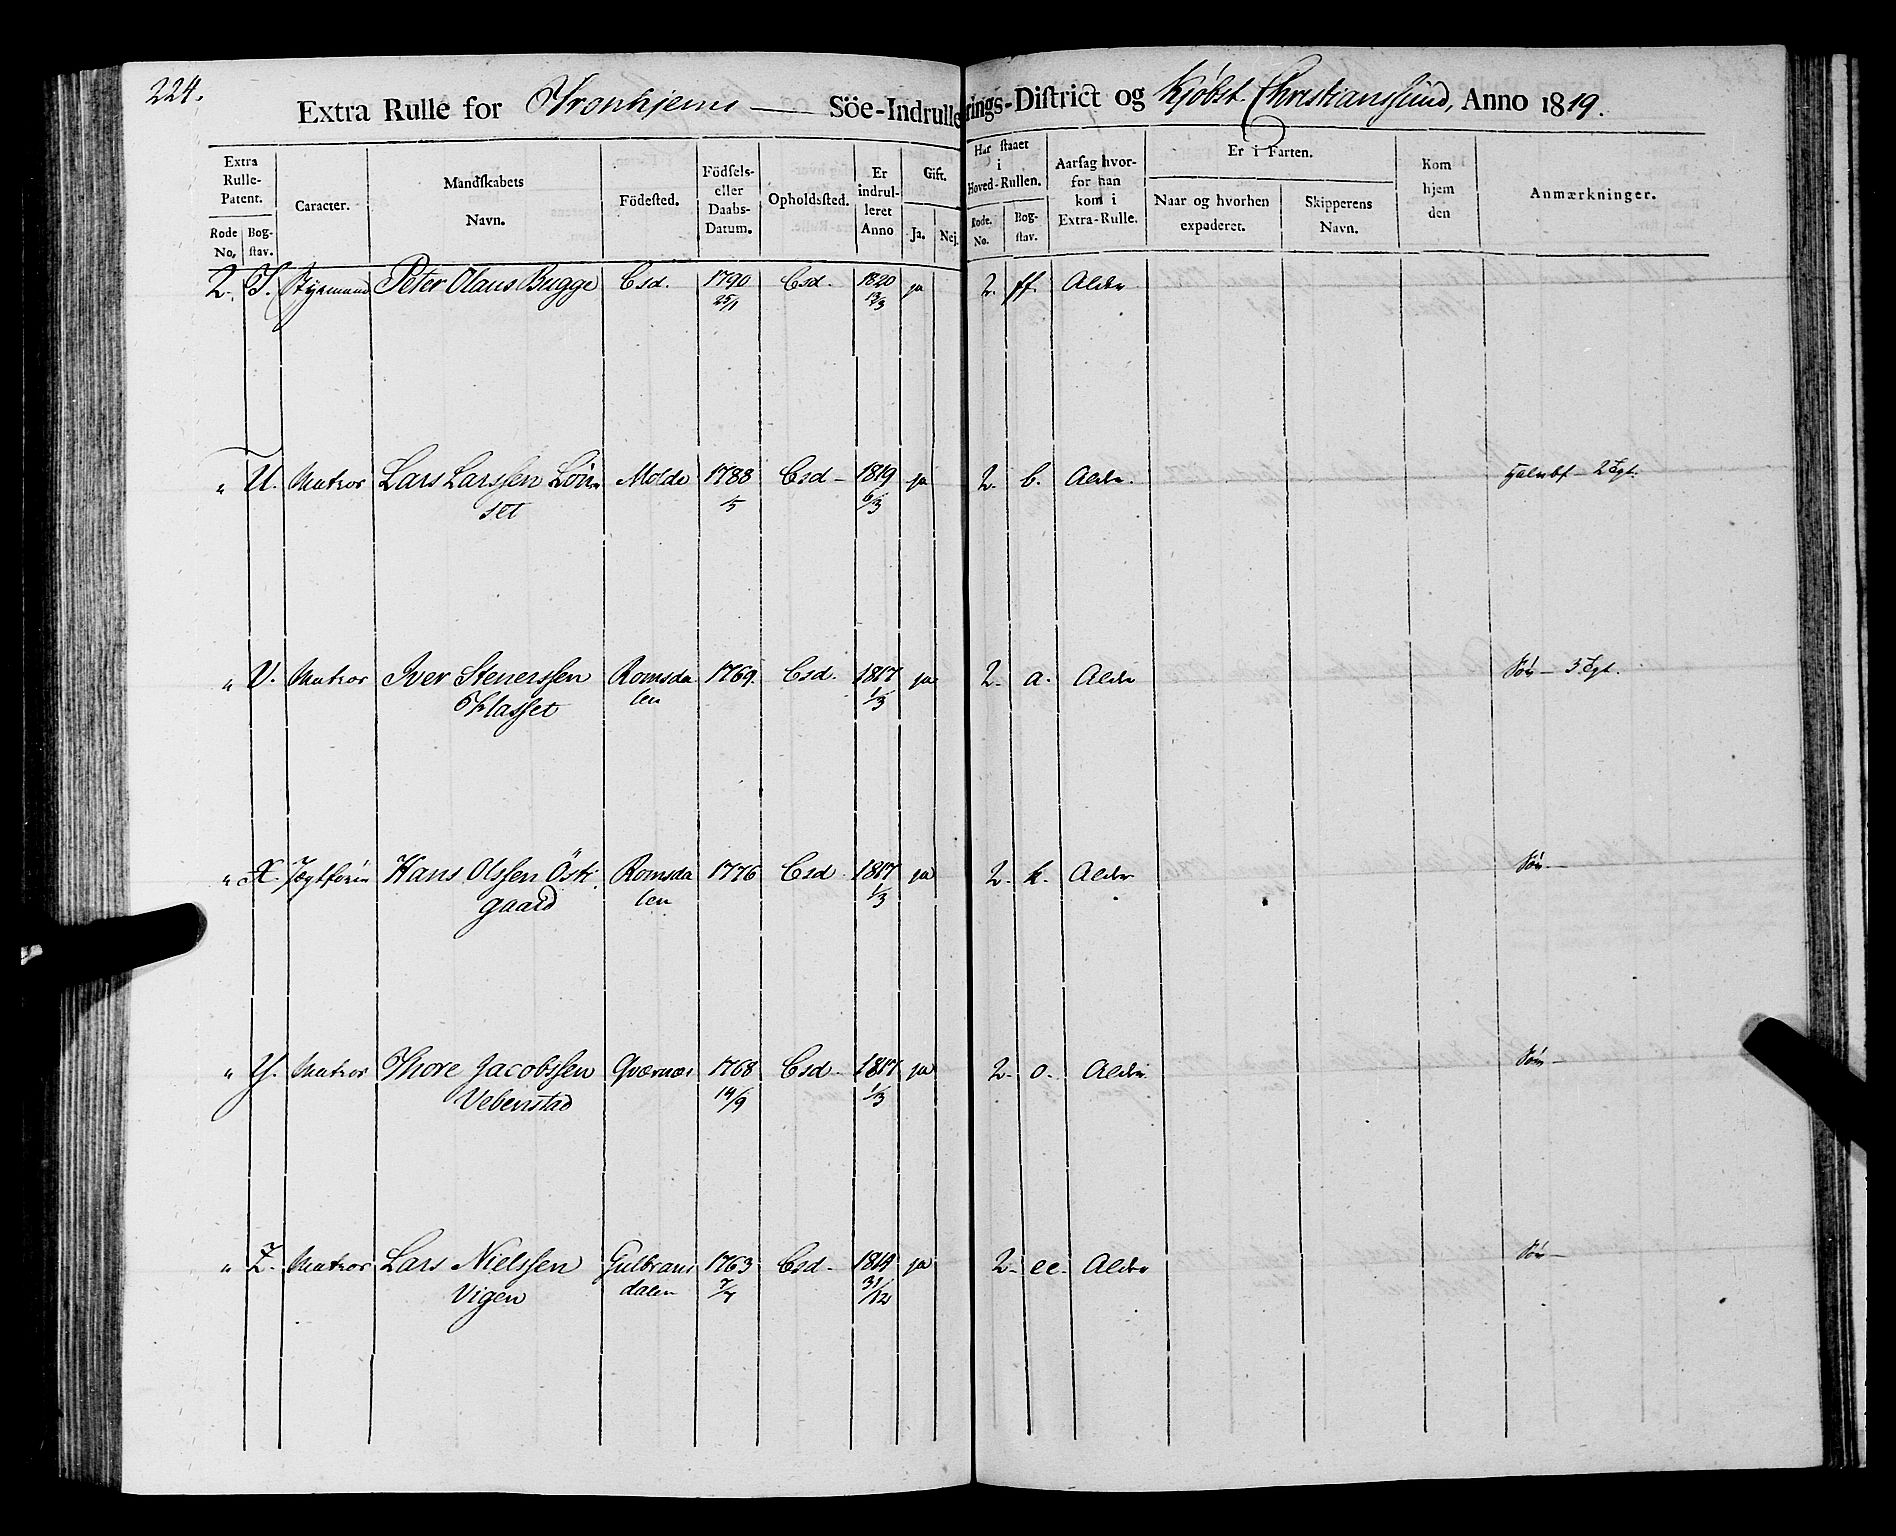 224.
Extra Rulle for Tronhjems — Söe-Indrullerings-District og Kjøbst. Christianssund, Anno 1819.
Extra Rulle-Patent. Caracter. Mandskabets Navn. Födested. Födsels- eller Daabs-Datum. Opholdsted. Er indrulleret Anno Gift. Har staaet i Hoved-Rullen. Aarsag hvorfor han kom i Extra-Rulle. Er i Farten. Kom hjem den Anmærkninger.
Rode No. Bogstav. Ja. Nej. Rode. No. Bogstav. Naar og hvorhen expederet. Skipperens Navn.
2. T. Styrmand Peter Olaus Bugge Csd. 1790 Csd. 1820 ja 2. ff. Alder
25/1 13/3
" U. Matros Lars Larssen Lön- Molde 1788 Csd — 1819 ja 2. b. Alder. 2 Tgt.
set /5 6/3
" V. Matros Iver Stenerssen Romsda 1769. Csd. 1817 ja 2. a. Alder 3 Tgt.
Flasset len 1/3
" X. Jægtförer Hans Olssen Öst- Romsda 1776 Csd 1817 ja 2. k. Alder
gaard len 1/3
" Y. Matros Thore Jacobssen Qværnæs 1768 Csd — 1817 ja 2. o. Alder
Vebenstad 14/9 1/3
" Z. Matros Lars Nielssen Gulbrans 1763 Csd — 1814 ja 2. ee. Alder
Vigen dalen 31/12